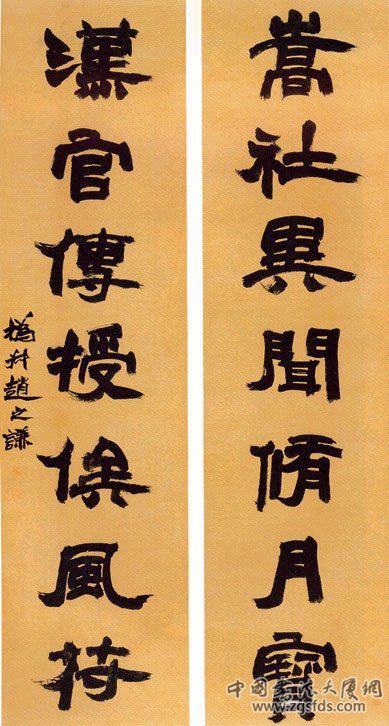 嵩社異聞脩月寶
漢官傳授候風符
撝叔趙之謙
中国书法大厦网
www.zgsfds.com